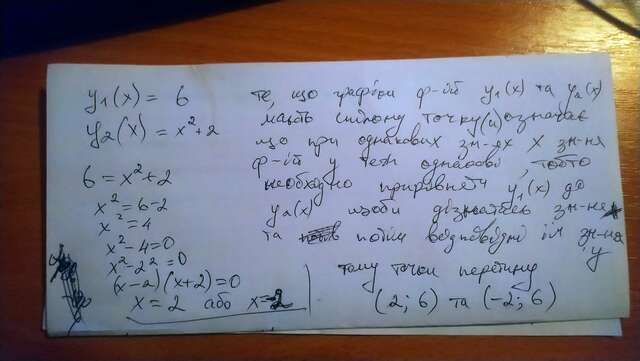 y₁(x) = 6
y₂(x) = x²+2
6 = x²+2
x² = 6-2
x² = 4
x²-4=0
x²-2²=0
(x-2)(x+2)=0
x = 2 або x=-2
те, що графіки ф-ій y₁(x) та y₂(x)
мають спільну точку(и) означає
що при однакових зн-ях x зн-ня
ф-ій y теж однакові, тобто
необхідно прирівняти y₁(x) до
y₂(x) щоби дізнатись зн-ня x
та потім відповідні їм зн-ня y
тому точки перетину
(2; 6) та (-2; 6)